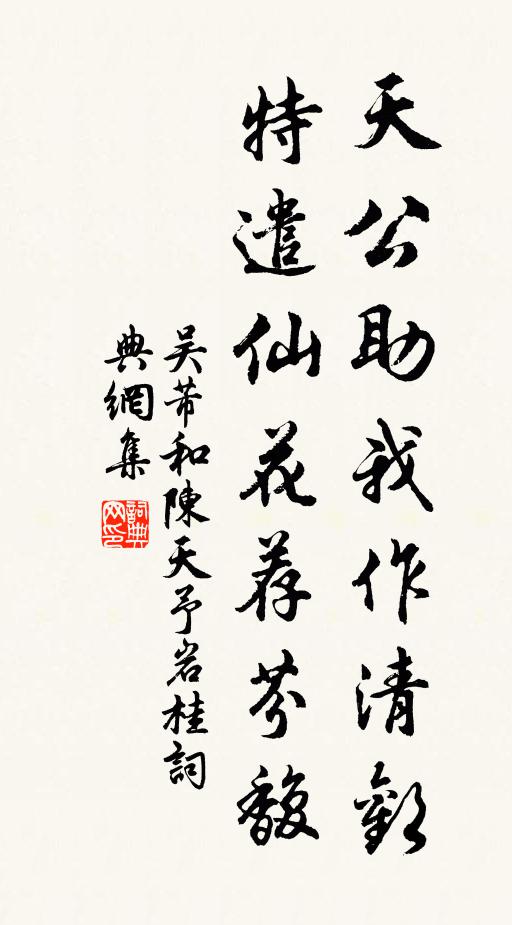 天公助我作清歡
特遣仙花荐芬馥
吴芾和陳天予岩桂詞
典網集
詞典
网印